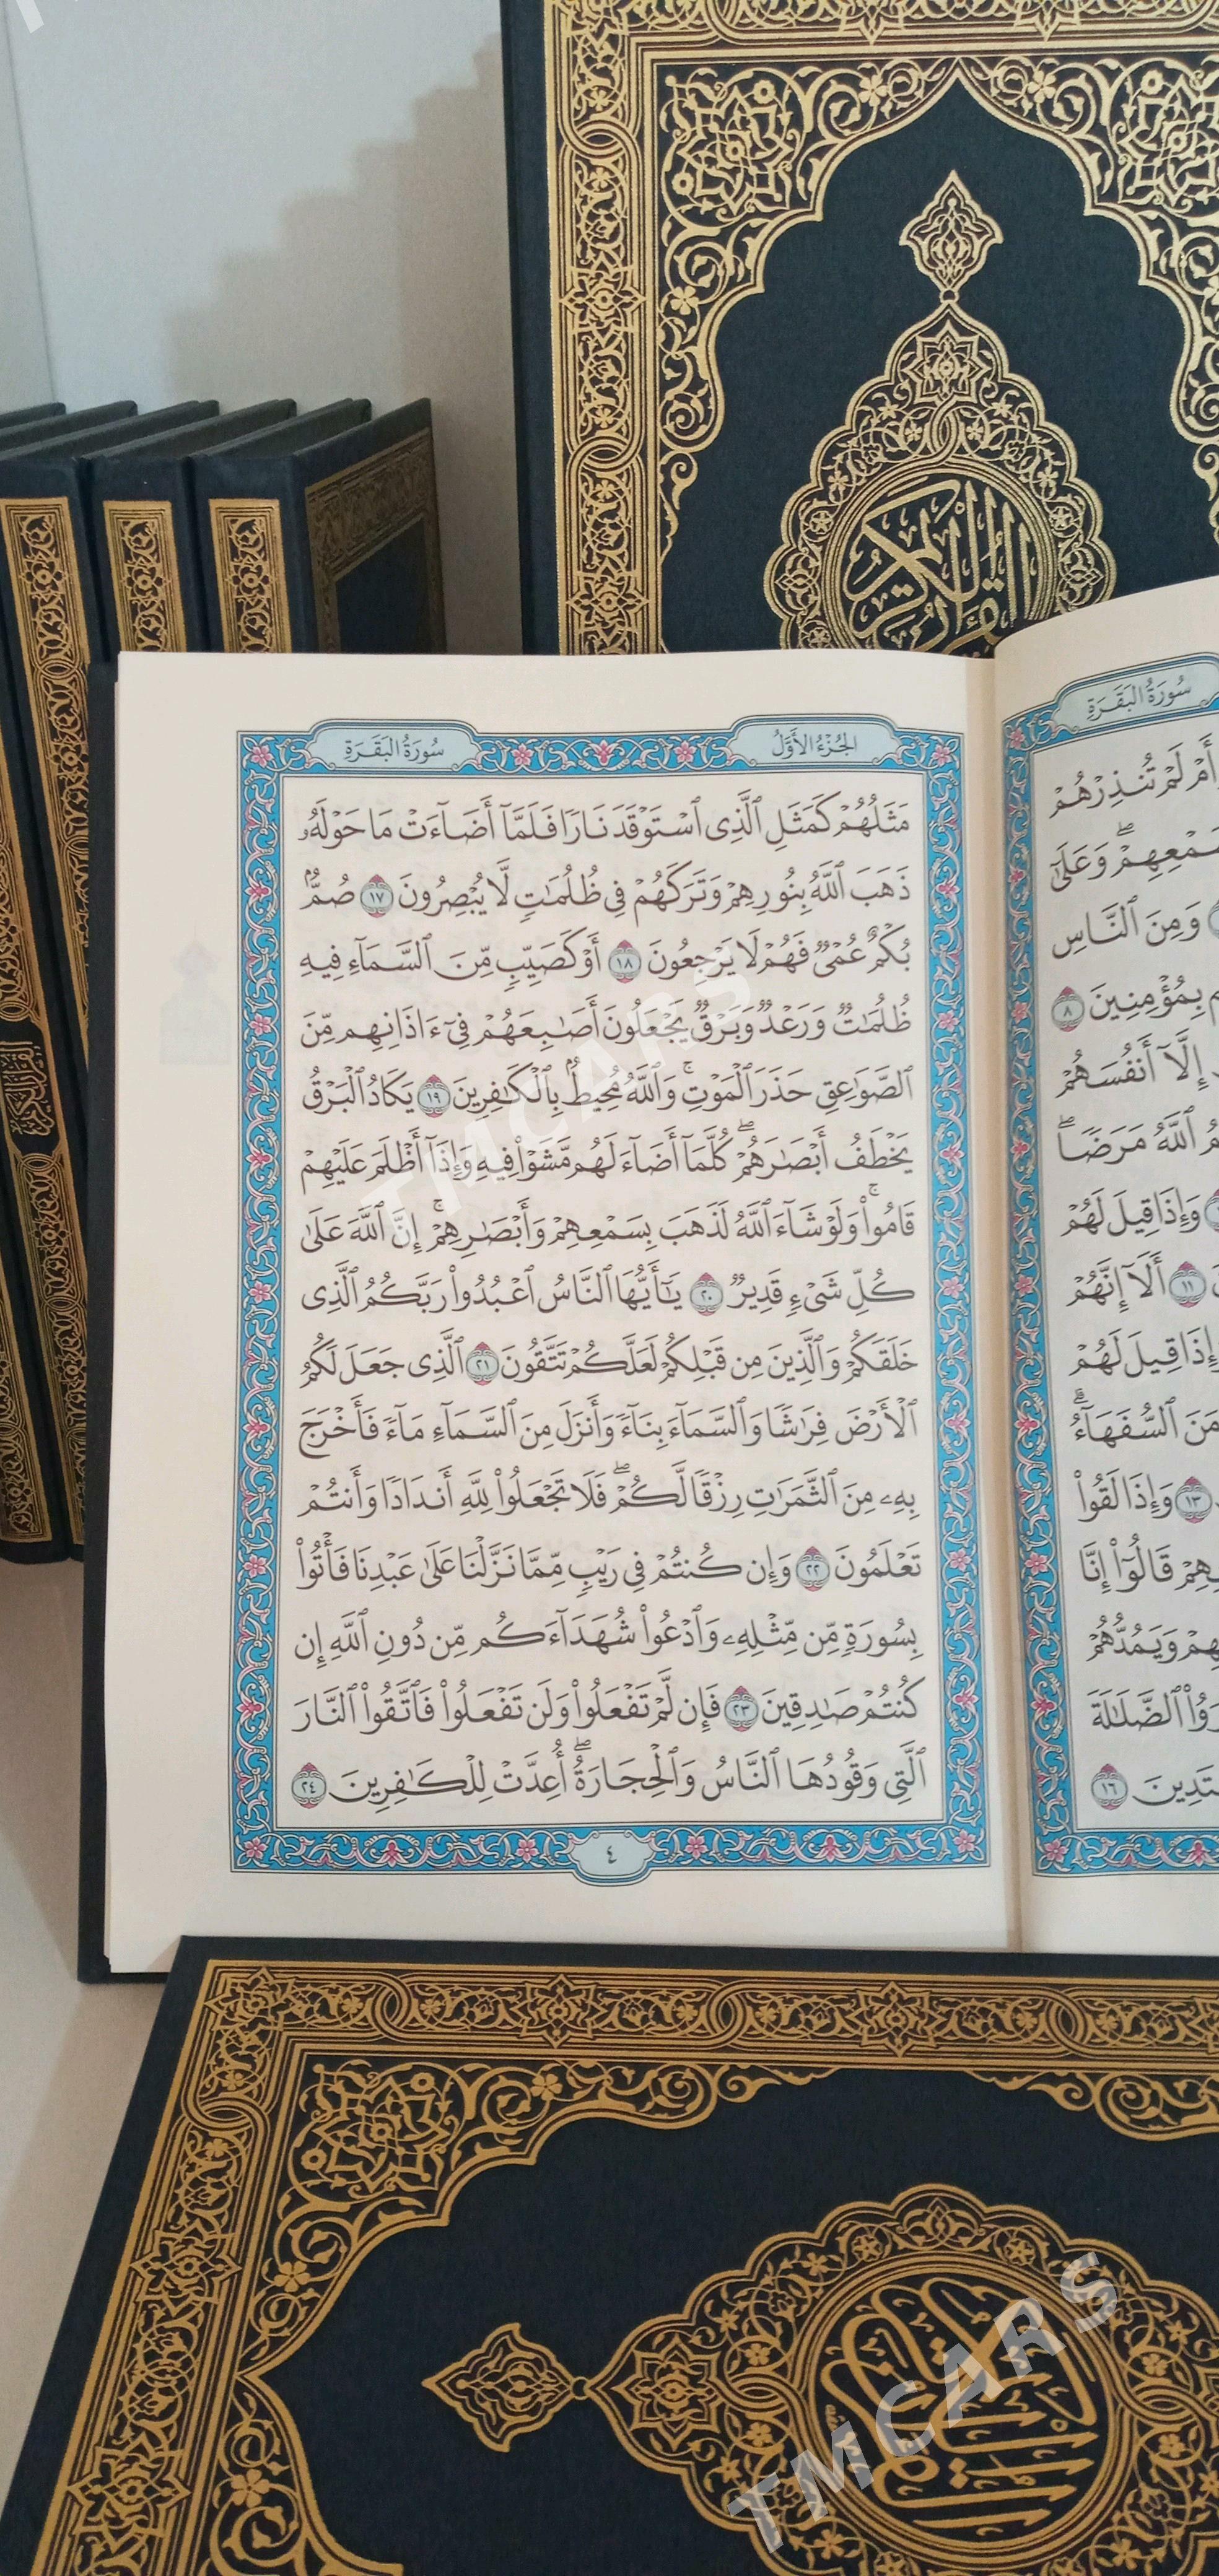 القرآن الكريم
الجُزْءُ الأَوَّلُ
سُورَةُ البَقَرَةِ
مَثَلُهُمْ كَمَثَلِ ٱلَّذِى ٱسْتَوْقَدَ نَارًا فَلَمَّآ أَضَآءَتْ مَا حَوْلَهُۥ
ذَهَبَ ٱللَّهُ بِنُورِهِمْ وَتَرَكَهُمْ فِى ظُلُمَٰتٍ لَّا يُبْصِرُونَ ١٧ صُمٌّۢ
بُكْمٌ عُمْىٌ فَهُمْ لَا يَرْجِعُونَ ١٨ أَوْ كَصَيِّبٍ مِّنَ ٱلسَّمَآءِ فِيهِ
ظُلُمَٰتٌ وَرَعْدٌ وَبَرْقٌ يَجْعَلُونَ أَصَٰبِعَهُمْ فِىٓ ءَاذَانِهِم مِّنَ
ٱلصَّوَٰعِقِ حَذَرَ ٱلْمَوْتِ ۚ وَٱللَّهُ مُحِيطٌۢ بِٱلْكَٰفِرِينَ ١٩ يَكَادُ ٱلْبَرْقُ
يَخْطَفُ أَبْصَٰرَهُمْ ۖ كُلَّمَآ أَضَآءَ لَهُم مَّشَوْا۟ فِيهِ وَإِذَآ أَظْلَمَ عَلَيْهِمْ
قَامُوا۟ ۚ وَلَوْ شَآءَ ٱللَّهُ لَذَهَبَ بِسَمْعِهِمْ وَأَبْصَٰرِهِمْ ۚ إِنَّ ٱللَّهَ عَلَىٰ
كُلِّ شَىْءٍ قَدِيرٌ ٢٠ يَٰٓأَيُّهَا ٱلنَّاسُ ٱعْبُدُوا۟ رَبَّكُمُ ٱلَّذِى
خَلَقَكُمْ وَٱلَّذِينَ مِن قَبْلِكُمْ لَعَلَّكُمْ تَتَّقُونَ ٢١ ٱلَّذِى جَعَلَ لَكُمُ
ٱلْأَرْضَ فِرَٰشًا وَٱلسَّمَآءَ بِنَآءً وَأَنزَلَ مِنَ ٱلسَّمَآءِ مَآءً فَأَخْرَجَ
بِهِۦ مِنَ ٱلثَّمَرَٰتِ رِزْقًا لَّكُمْ ۖ فَلَا تَجْعَلُوا۟ لِلَّهِ أَندَادًا وَأَنتُمْ
تَعْلَمُونَ ٢٢ وَإِن كُنتُمْ فِى رَيْبٍ مِّمَّا نَزَّلْنَا عَلَىٰ عَبْدِنَا فَأْتُوا۟
بِسُورَةٍ مِّن مِّثْلِهِۦ وَٱدْعُوا۟ شُهَدَآءَكُم مِّن دُونِ ٱللَّهِ إِن
كُنتُمْ صَٰدِقِينَ ٢٣ فَإِن لَّمْ تَفْعَلُوا۟ وَلَن تَفْعَلُوا۟ فَٱتَّقُوا۟ ٱلنَّارَ
ٱلَّتِى وَقُودُهَا ٱلنَّاسُ وَٱلْحِجَارَةُ ۖ أُعِدَّتْ لِلْكَٰفِرِينَ ٢٤
٤
سُورَةُ البَقَرَةِ
أَمْ لَمْ تُنذِرْهُمْ
وَعَلَىٰٓ
وَمِنَ ٱلنَّاسِ
بِمُؤْمِنِينَ ٨
إِلَّآ أَنفُسَهُمْ
ٱللَّهُ مَرَضًا ۖ
وَإِذَا قِيلَ لَهُمْ
١١ أَلَآ إِنَّهُمْ
وَإِذَا قِيلَ لَهُمْ
ٱلسُّفَهَآءُ ۗ
١٣ وَإِذَا لَقُوا۟
قَالُوٓا۟ إِنَّا
وَيَمُدُّهُمْ
ٱلضَّلَٰلَةَ
١٦
القرآن الكريم
القرآن الكريم
TMCARS
TMCARS